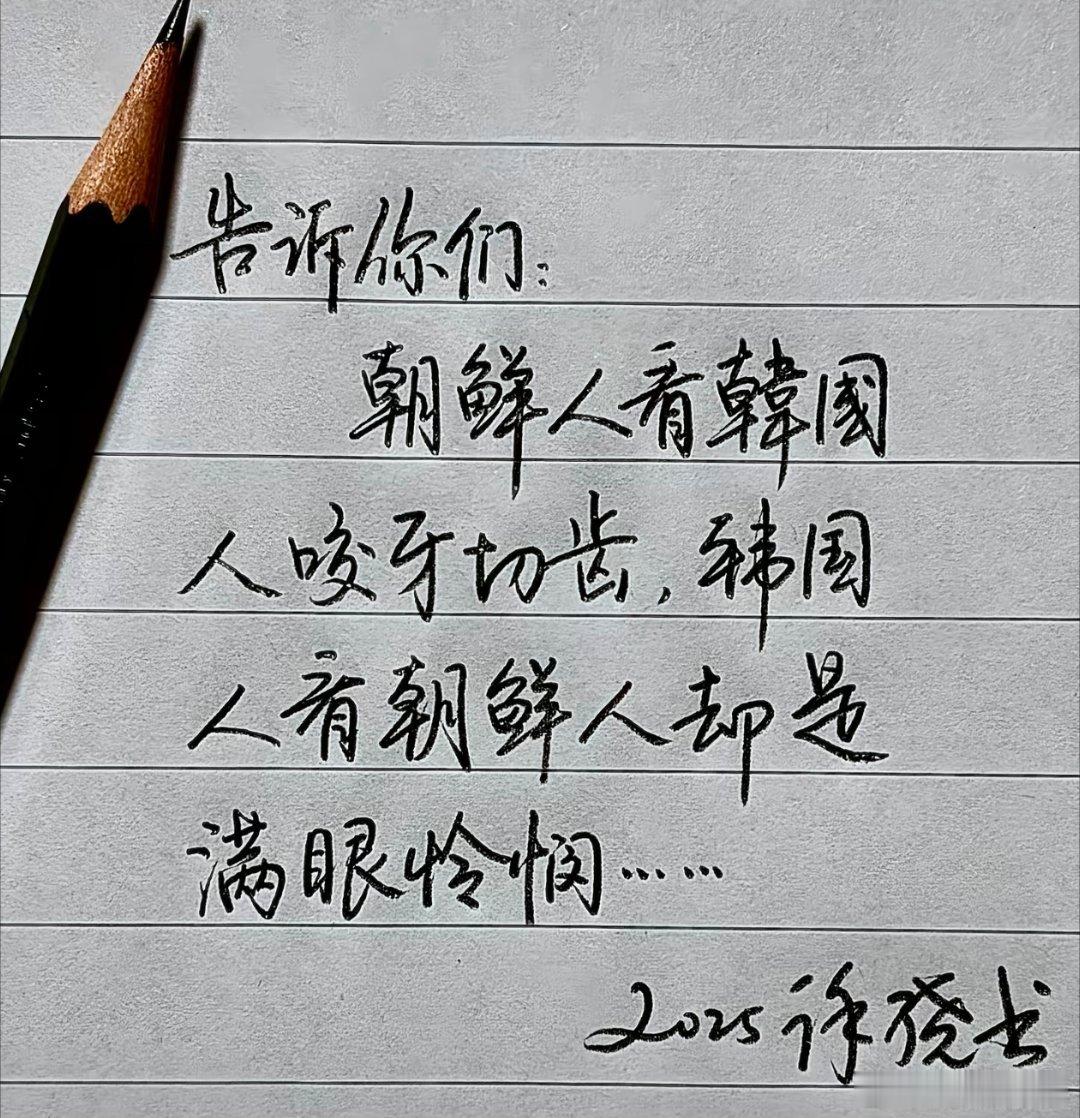 告诉你们：
朝鲜人看韓國
人咬牙切齿，韩国
人看朝鲜人却是
满眼怜悯……
2025 徐晓书